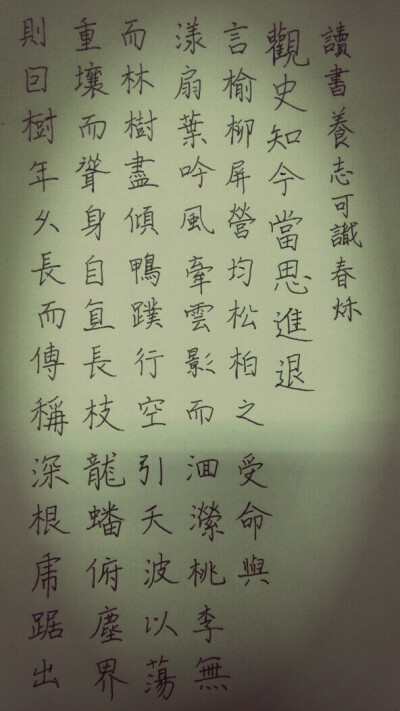 讀書養志可識春秌
觀史知今當思進退
言榆柳屏營均松柏之受命與
漾扇葉吟風牽雲影而洄瀠桃李無
而林樹盡傾鴨蹼行空引天波以蕩
重壤而聳身自直長枝龍蟠俯塵界
則囙樹年久長而傳稱深根虎踞出